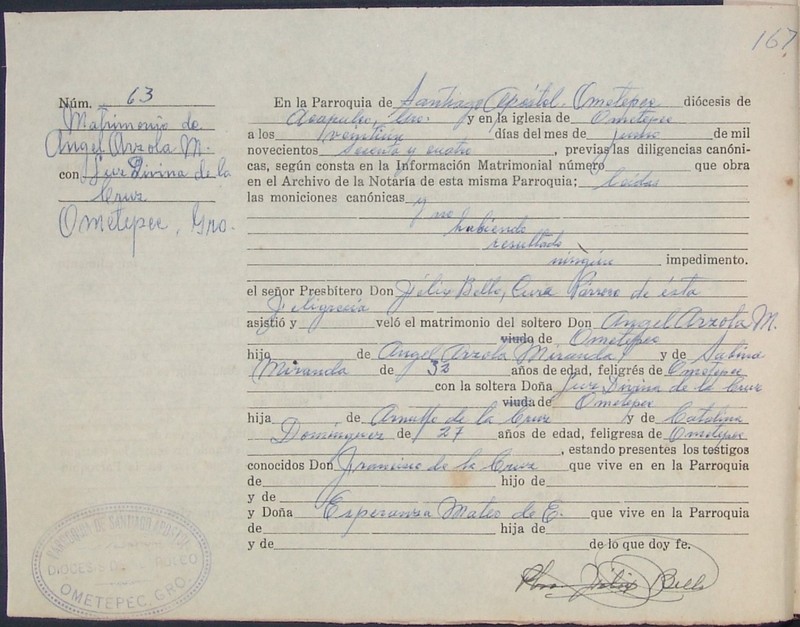 167
Núm. 63
Matrimonio de
Angel Arzola M.
con Luz Divina de la
Cruz
Ometepec, Gro.
En la Parroquia de Santiago Apóstol, Ometepec diócesis de
Acapulco, Gro. y en la iglesia de Ometepec
a los Veintiun días del mes de Junio de mil
novecientos Sesenta y cuatro, previas las diligencias canóni-
cas, según consta en la Información Matrimonial número que obra
en el Archivo de la Notaría de esta misma Parroquia; leídas
las moniciones canónicas y no
habiendo
resultado
ningún impedimento.
el señor Presbítero Don Félix Bello, Cura Párroco de ésta
Feligresía
asistió y veló el matrimonio del soltero Don Angel Arzola M.
viudo de Ometepec
hijo de Angel Arzola Miranda y de Sabina
Miranda de 32 años de edad, feligrés de Ometepec
con la soltera Doña Luz Divina de la Cruz
viuda de Ometepec
hija de Arnulfo de la Cruz y de Catalina
Domínguez de 27 años de edad, feligresa de Ometepec
, estando presentes los testigos
conocidos Don Francisco de la Cruz que vive en en la Parroquia
de hijo de
y de
y Doña Esperanza Mateo de E. que vive en la Parroquia
de hija de
y de de lo que doy fe.
Pbro. Félix Bello
PARROQUIA DE SANTIAGO APOSTOL
DIOCESIS DE ACAPULCO
OMETEPEC, GRO.